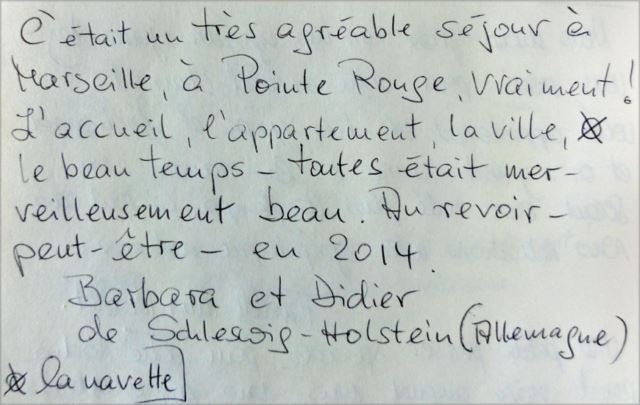 C'était un très agréable séjour à
Marseille, à Pointe Rouge, vraiment!
L'accueil, l'appartement, la ville, ⊗
le beau temps – toutes était mer-
veilleusement beau. Au revoir –
peut-être – en 2014.
Barbara et Didier
de Schleswig-Holstein (Allemagne)
⊗ la navette